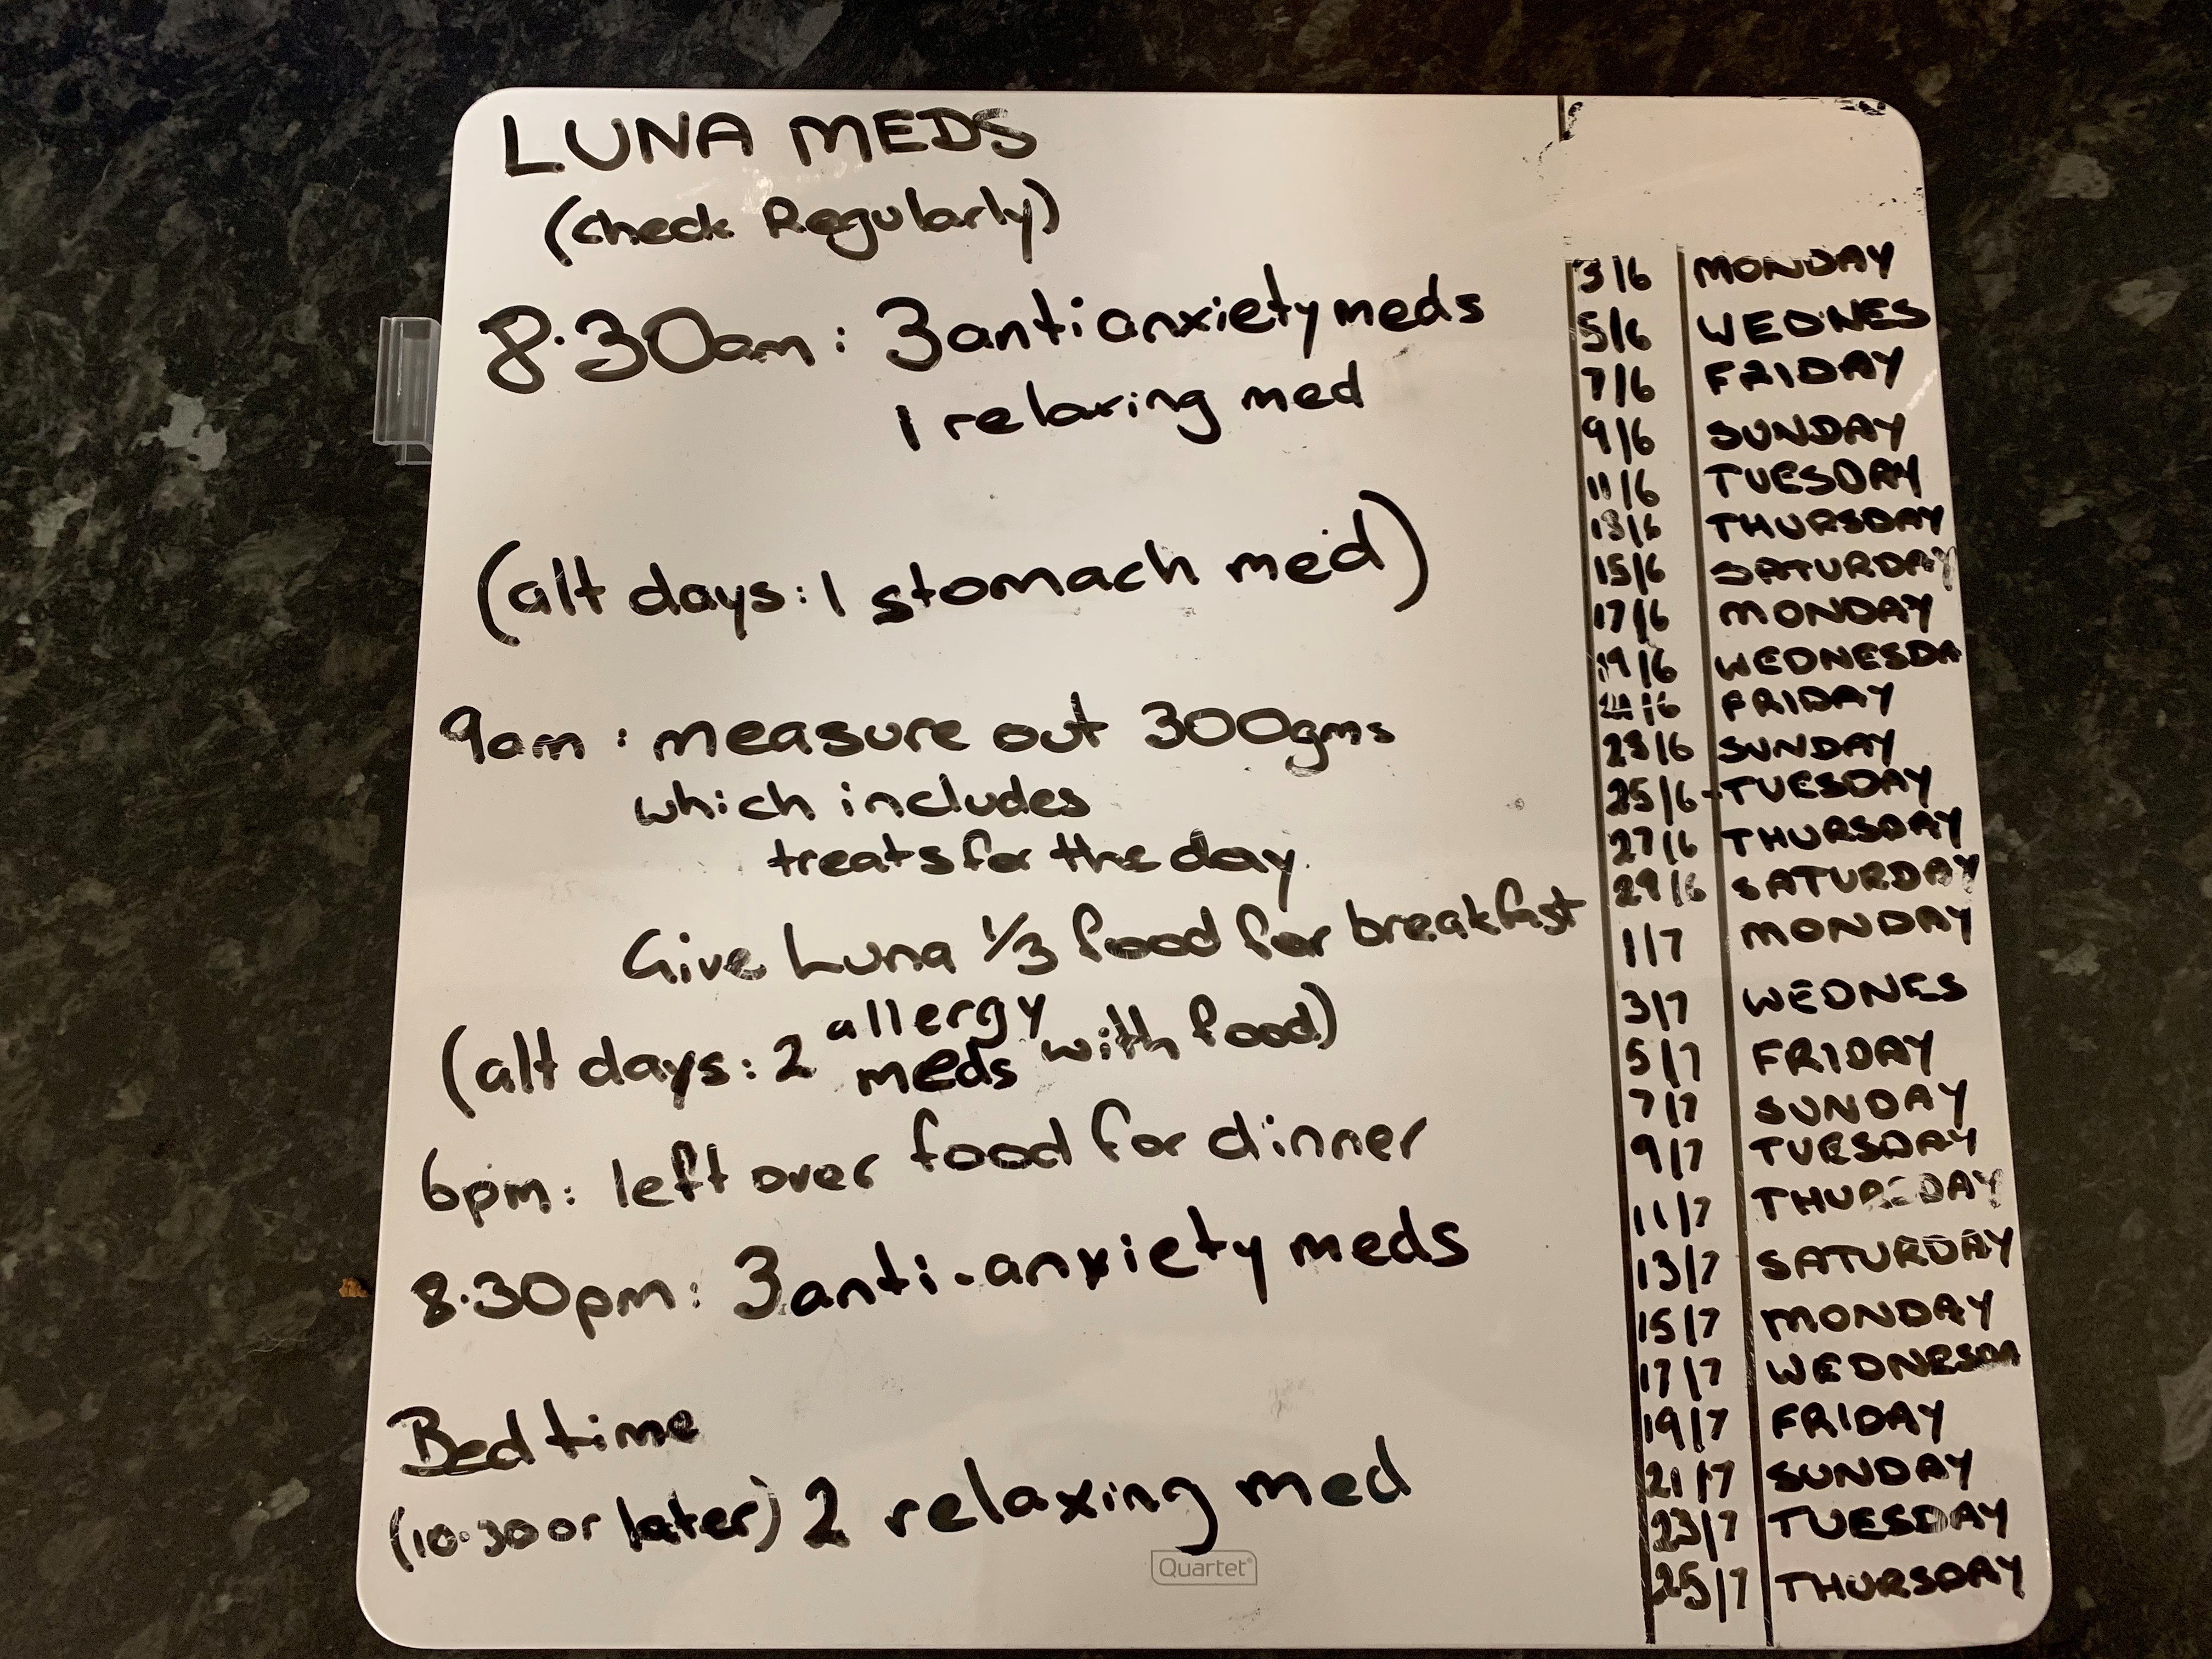 LUNA MEDS
(Check Regularly)
8.30am: 3 antianxiety meds
1 relaxing med
(alt days: 1 stomach med)
9am: measure out 300gms
which includes
treats for the day.
Give Luna 1/3 food for breakfast
(alt days: 2 allergy meds with food)
6pm: left over food for dinner
8.30pm: 3 anti-anxiety meds
Bedtime
(10.30 or later) 2 relaxing med
Quartet
3/6 MONDAY
5/6 WEDNES
7/6 FRIDAY
9/6 SUNDAY
11/6 TUESDAY
13/6 THURSDAY
15/6 SATURDAY
17/6 MONDAY
19/6 WEDNESDA
21/6 FRIDAY
23/6 SUNDAY
25/6 - TUESDAY
27/6 THURSDAY
29/6 SATURDAY
1/7 MONDAY
3/7 WEDNES
5/7 FRIDAY
7/7 SUNDAY
9/7 TUESDAY
11/7 THURSDAY
13/7 SATURDAY
15/7 MONDAY
17/7 WEDNESDA
19/7 FRIDAY
21/7 SUNDAY
23/7 TUESDAY
25/7 THURSDAY